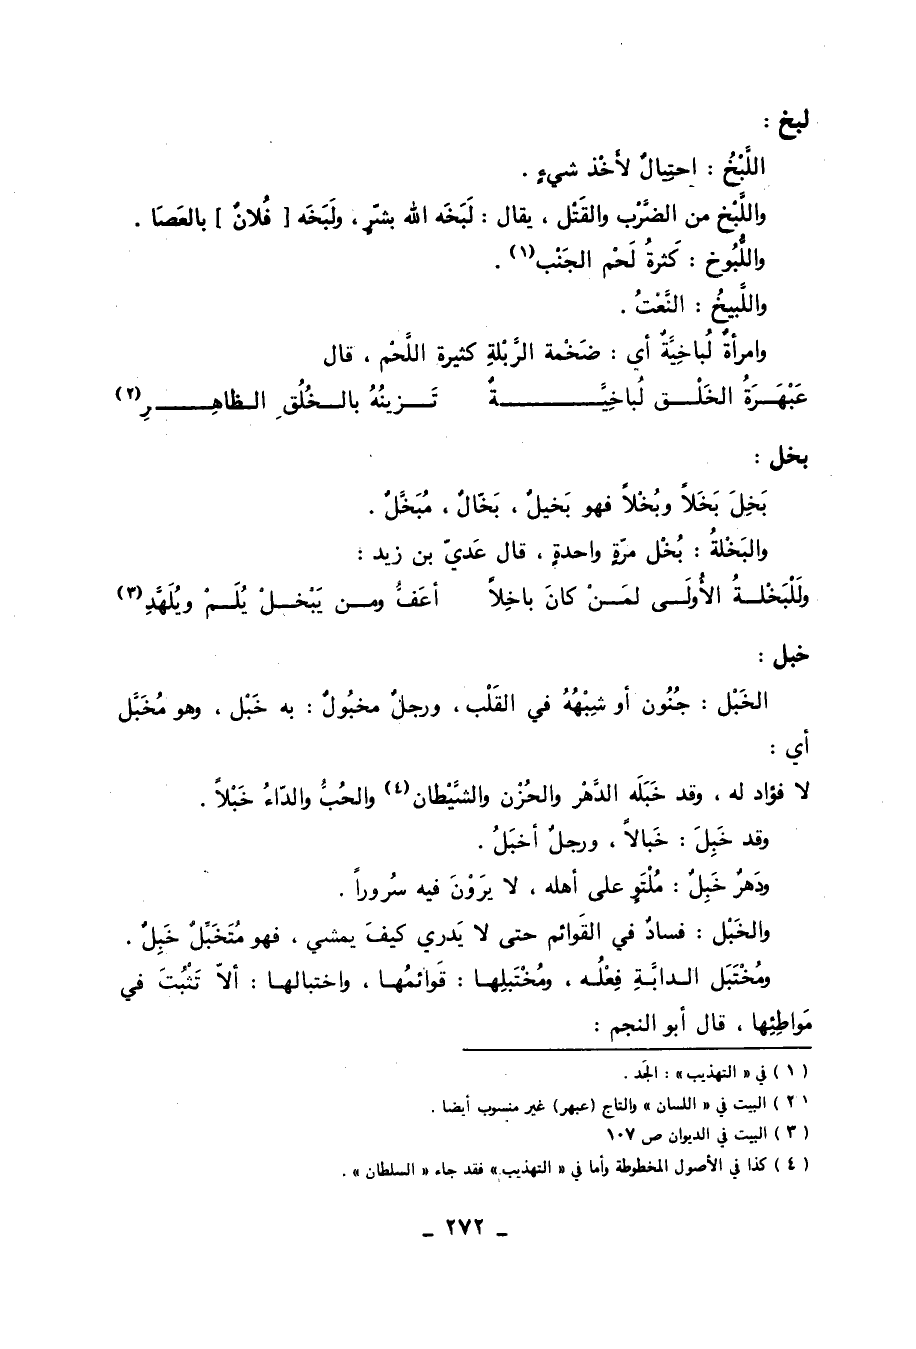 لبخ :
اللَّبْخُ : احتِيالٌ لأَخْذ شيءٍ .
واللَّبْخ من الضَّرْب والقَتْل ، يقال : لَبَخَه الله بشَرٍّ ، ولَبَخَه [ فُلانٌ ] بالعَصَا .
واللُّبُوخ : كَثرةُ لَحْم الجَنْب(١) .
واللَّبيخُ : النَّعْتُ .
وامرأةٌ لُباخِيَّةٌ أي : ضَخْمة الرَّبْلةِ كثيرة اللَّحْم ، قال
عَبْهَرَةُ الخَلْق لُباخِيَّةٌ تَزينُهُ بالخُلُقِ الظاهِرِ(٢)
بخل :
بَخِلَ بَخَلاً وبُخْلاً فهو بَخيلٌ ، بَخّالٌ ، مُبَخَّلٌ .
والبَخْلةُ : بُخْل مرّةٍ واحدةٍ ، قال عَديّ بن زيد :
ولَلْبَخْلةُ الأُولَى لمَنْ كانَ باخِلاً أعَفُّ ومن يَبْخلْ يُلَمْ ويُلَهَّدِ(٣)
خبل :
الخَبْل : جُنُون أو شِبْهُهُ في القَلْب ، ورجلٌ مخبُولٌ : به خَبْل ، وهو مُخَبَّل
أي :
لا فؤاد له ، وقد خَبَلَه الدَّهْر والحُزْن والشَّيْطان(٤) والحُبُّ والدّاءُ خَبْلاً .
وقد خَبِلَ : خَبالاً ، ورجلٌ أخبَلُ .
ودَهرٌ خَبِلٌ : مُلْتَوٍ على أهله ، لا يَرَوْنَ فيه سُروراً .
والخَبْل : فسادٌ في القَوائم حتى لا يَدري كيفَ يمشي ، فهو مُتَخَبِّلٌ خَبِلٌ .
ومُخْتَبَل الدابَّةِ فِعْلُه ، ومُخْتَبلِها : قَوائمُها ، واختبالها : ألاّ تَثْبُتَ في
مَواطِئِها ، قال أبو النجم :
( ١ ) في « التهذيب » : الجَد .
٢ ) البيت في « اللسان » والتاج (عبهر) غير منسوب أيضا .
( ٣ ) البيت في الديوان ص ١٠٧
( ٤ ) كذا في الأصول المخطوطة وأما في « التهذيب » فقد جاء « السلطان » .
ـ ٢٧٢ ـ